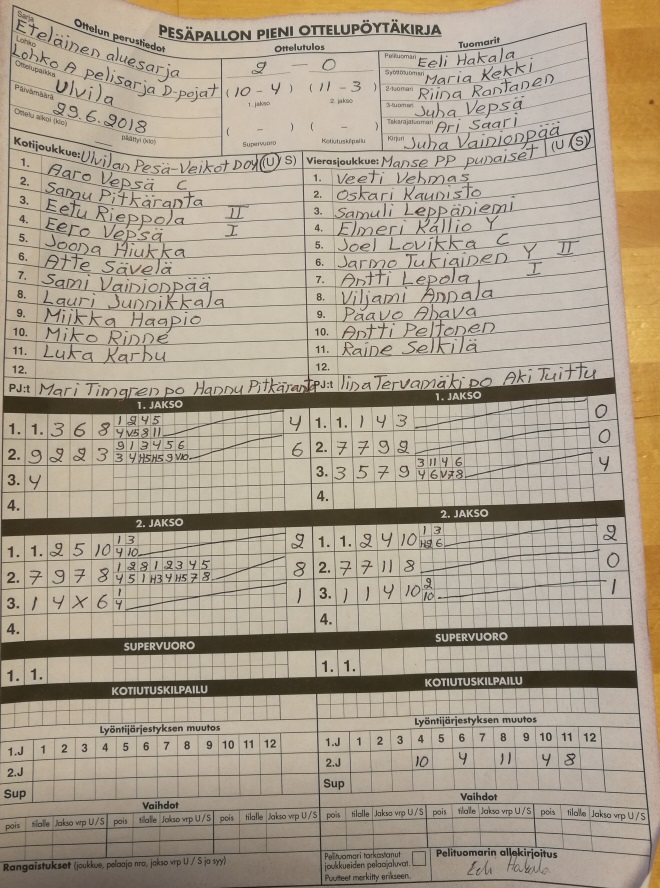 PESÄPALLON PIENI OTTELUPÖYTÄKIRJA
Ottelun perustiedot
Sarja
Eteläinen aluesarja
Lohko
Lohko A pelisarja D-pojat
Ottelupaikka
Ulvila
Päivämäärä
29.6.2018
Ottelu alkoi (klo) päättyi (klo)
Ottelutulos
2 — 0
(10 - 4) (11 - 3)
1. jakso 2. jakso
( - ) ( - )
Supervuoro Kotiutuskilpailu
Tuomarit
Pelituomari Eeli Hakala
Syöttötuomari Maria Kekki
2-tuomari Riina Rantanen
3-tuomari Juha Vepsä
Takarajatuomari Ari Saari
Kirjuri Juha Vainionpää
Kotijoukkue: Ulvilan Pesä-Veikot (U) S)
1. Aaro Vepsä C
2. Samu Pitkäranta
3. Eetu Rieppola II
4. Eero Vepsä I
5. Joona Hiukka
6. Atte Sävelä
7. Sami Vainionpää
8. Lauri Junnikkala
9. Miikka Haapio
10. Miko Rinne
11. Luka Karhu
12.
PJ:t Mari Timgren po Hannu Pitkäranta
Vierasjoukkue: Manse PP punaiset (U (S)
1. Veeti Vehmas
2. Oskari Kaunisto
3. Samuli Leppäniemi
4. Elmeri Kallio Y
5. Joel Lovikka C
6. Jarmo Tukiainen Y II
7. Antti Lepola I
8. Viljami Annala
9. Paavo Ahava
10. Antti Peltonen
11. Raine Selkilä
12.
PJ:t Iina Tervamäki po Aki Tuittu
1. JAKSO
1. 1. 3 6 8 1 2 4 5 4
2. 9 2 2 3 9 1 3 4 5 6 6
3. 4
4.
1. JAKSO
1. 1. 1 4 3 0
2. 7 7 9 2 0
3. 3 5 7 9 3 11 4 6 4
4.
2. JAKSO
1. 1. 2 5 10 1 3 4 10 2
2. 7 9 7 8 1 2 8 1 2 3 4 5 8
3. 1 4 X 6 1 4 1
4.
2. JAKSO
1. 1. 2 4 10 1 3 2
2. 7 7 11 8 0
3. 1 1 4 10 2 10 1
4.
SUPERVUORO
1. 1.
SUPERVUORO
1. 1.
KOTIUTUSKILPAILU
KOTIUTUSKILPAILU
Lyöntijärjestyksen muutos
1.J 1 2 3 4 5 6 7 8 9 10 11 12
2.J
Sup
Lyöntijärjestyksen muutos
1.J 1 2 3 4 5 6 7 8 9 10 11 12
2.J 10 4 11 4 8
Sup
Vaihdot
pois tilalle Jakso vrp U / S pois tilalle Jakso vrp U / S pois tilalle Jakso vrp U / S
Vaihdot
pois tilalle Jakso vrp U / S pois tilalle Jakso vrp U / S pois tilalle Jakso vrp U / S
Rangaistukset (joukkue, pelaaja nro, jakso vrp U / S ja syy)
Pelituomari tarkastanut
joukkueiden pelaajaluvat.
Puutteet merkitty erikseen.
Pelituomarin allekirjoitus
Eeli Hakala